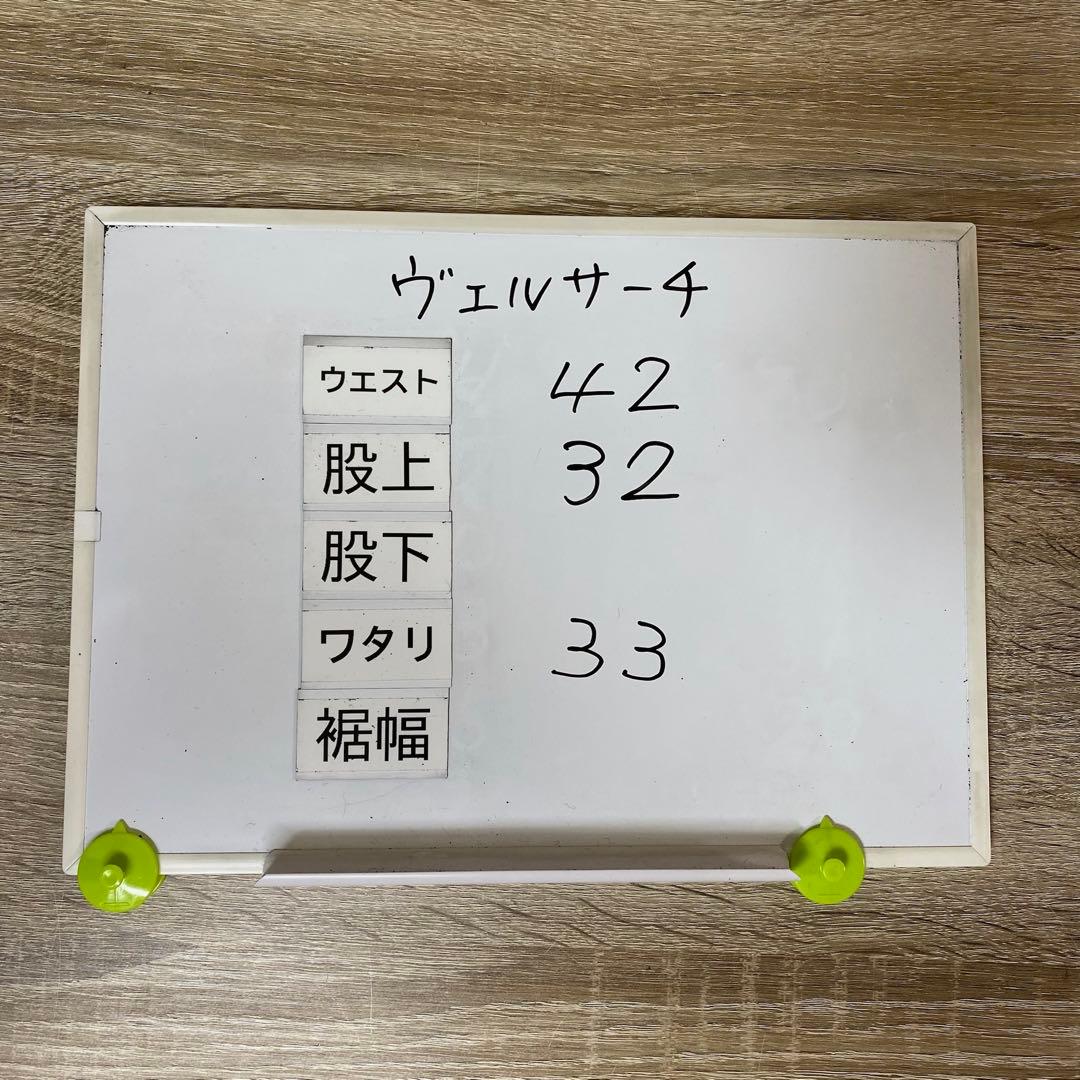 ヴェルサーチ
ウエスト 42
股上 32
股下
ワタリ 33
裾幅